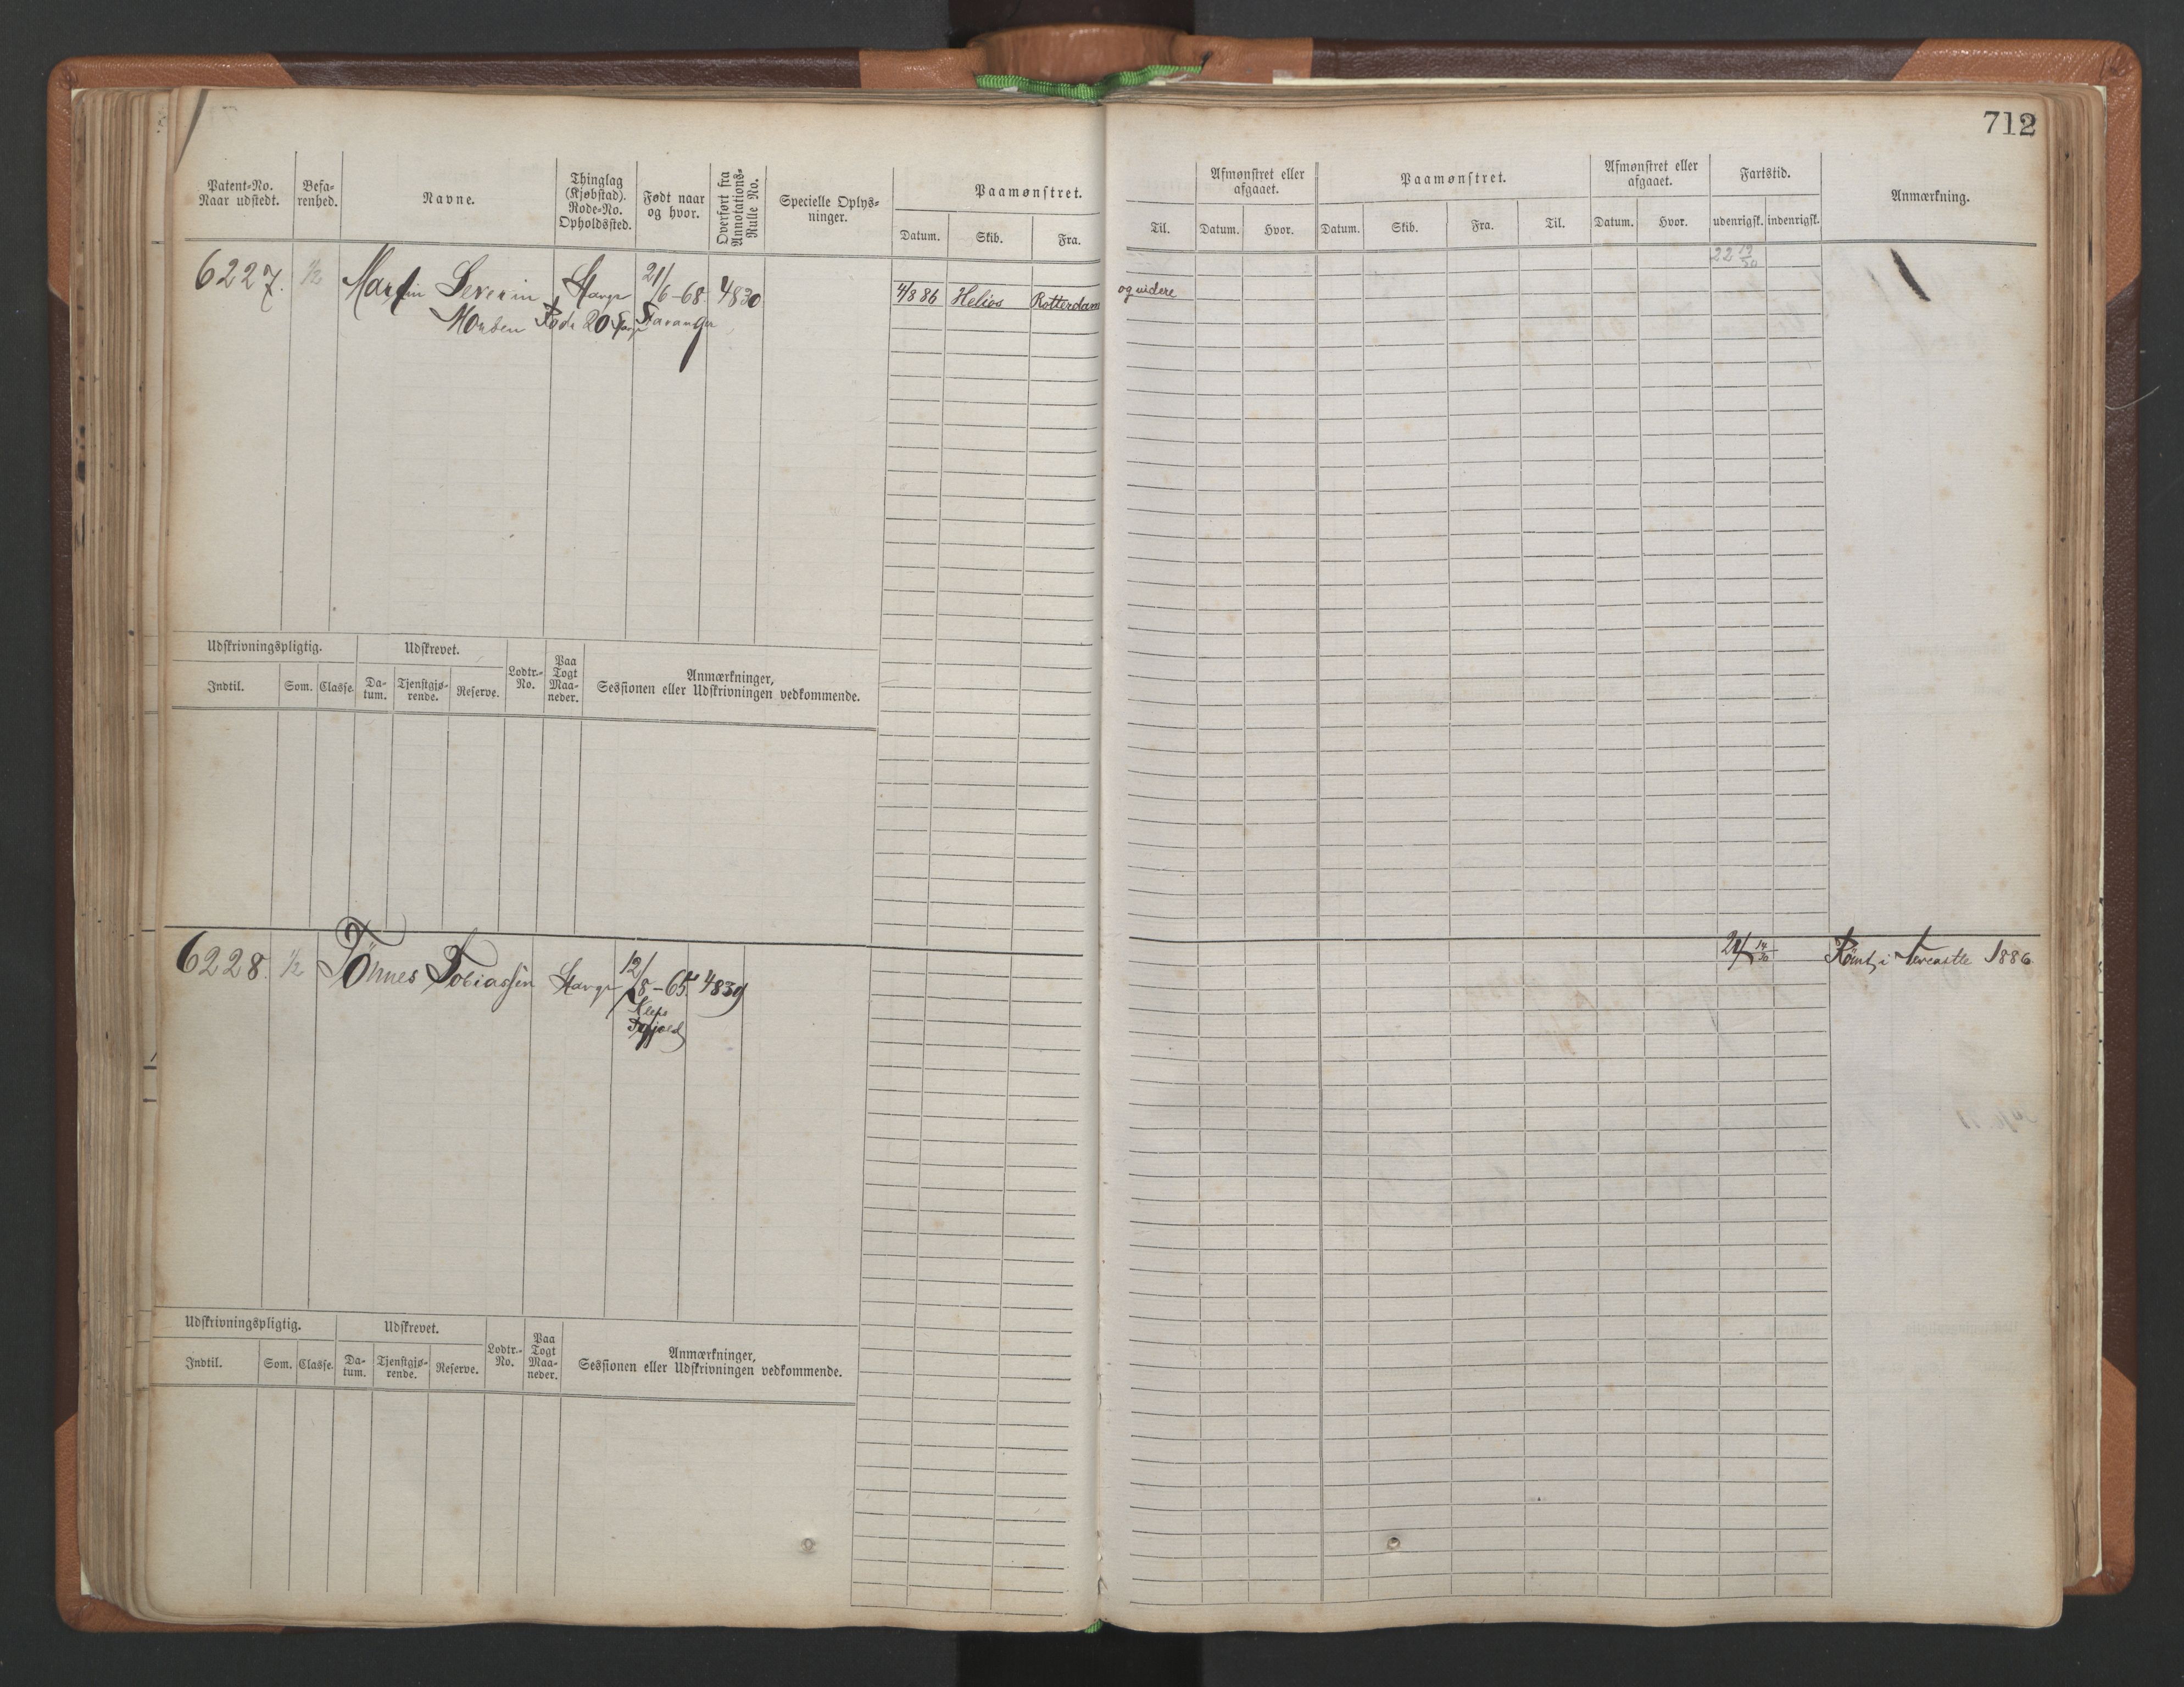 712
Patent-No. Naar udstedt.
Befarenhed.
Navne.
Thinglag (Kjøbstad). Rode-No. Opholdssted.
Født naar og hvor.
Overført fra Annotations-Rulle No.
Specielle Oplysninger.
Paamønstret.
Datum.
Skib.
Fra.
Til.
Afmønstret eller afgaaet.
Datum.
Hvor.
Paamønstret.
Datum.
Skib.
Fra.
Til.
Afmønstret eller afgaaet.
Datum.
Hvor.
Fartstid.
udenrigsk.
indenrigsk.
Anmærkning.
6227. 1/2 Martin Severin Stavgr 21/6-68 4830 4/8 86 Helios Rotterdam og videre 22 19/30
Rode 20 Stavanger
Udskrivningspligtig.
Udskrevet.
Indtil.
Som.
Classe.
Datum.
Tjenstgjørende.
Reserve.
Lodtr.-No.
Paa Togt Maaneder.
Anmærkninger, Sessionen eller Udskrivningen vedkommende.
6228. 1/2 Tönnes Tobiassen Stavgr 12/8-65 4839 Römt i Newcastle 1886
Klep
Udskrivningspligtig.
Udskrevet.
Indtil.
Som.
Classe.
Datum.
Tjenstgjørende.
Reserve.
Lodtr.-No.
Paa Togt Maaneder.
Anmærkninger, Sessionen eller Udskrivningen vedkommende.